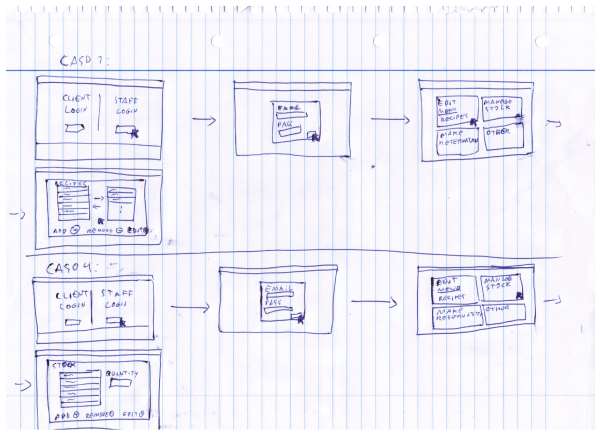 CASO 1:
CLIENT LOGIN
STAFF LOGIN
PASS
EDIT MENU RECIPES
MANAGE STOCK
MAKE
OTHER
RECIPES
ADD REMOVE EDIT
CASO 4:
CLIENT LOGIN
STAFF LOGIN
EMAIL
PASS
EDIT MENU RECIPES
MANAGE STOCK
MAKE
OTHER
STOCK
QUANTITY
ADD REMOVE EDIT